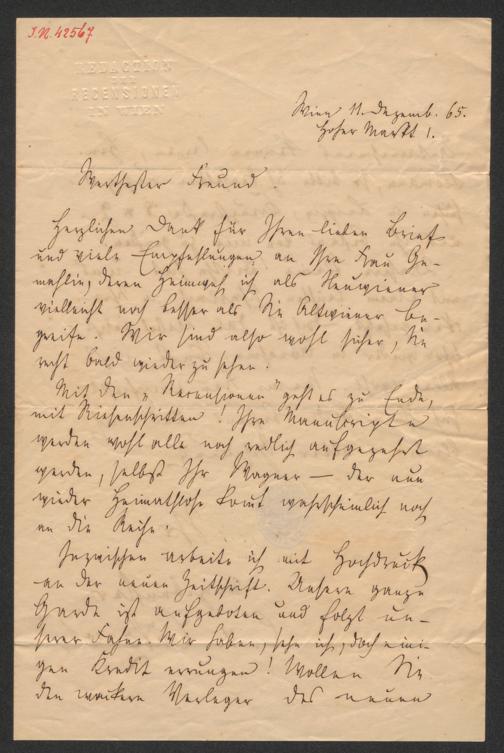 I.N. 42567
REDACTION
DER
RECENSIONEN
IN WIEN
Wien 11. Dezemb. 65.
Hoher Markt 1.
Werthester Freund.
Herzlichen Dank für Ihren lieben Brief
und viele Empfehlungen an Ihre Frau Ge-
mahlin, deren Heimweh ich als Neuwiener
vielleicht noch besser als Sie Altwiener be-
greife. Wir sind also wohl sicher, Sie
recht bald wieder zu sehen.
Mit den „Recensionen" geht es zu Ende,
mit Riesenschritten! Ihre Manuscripte
werden wohl alle noch redlich aufgezehrt
werden, selbst Ihr Wagner — der nun
wieder Heimathlose komt wahrscheinlich noch
an die Reihe.
Inzwischen arbeite ich mit Hochdruck
an der neuen Zeitschrift. Unsere ganze
Garde ist aufgeboten und folgt un-
serer Fahne. Wir haben, sehe ich, doch eini
gen Kredit errungen! Wollen Sie
den wackern Verleger des neuen